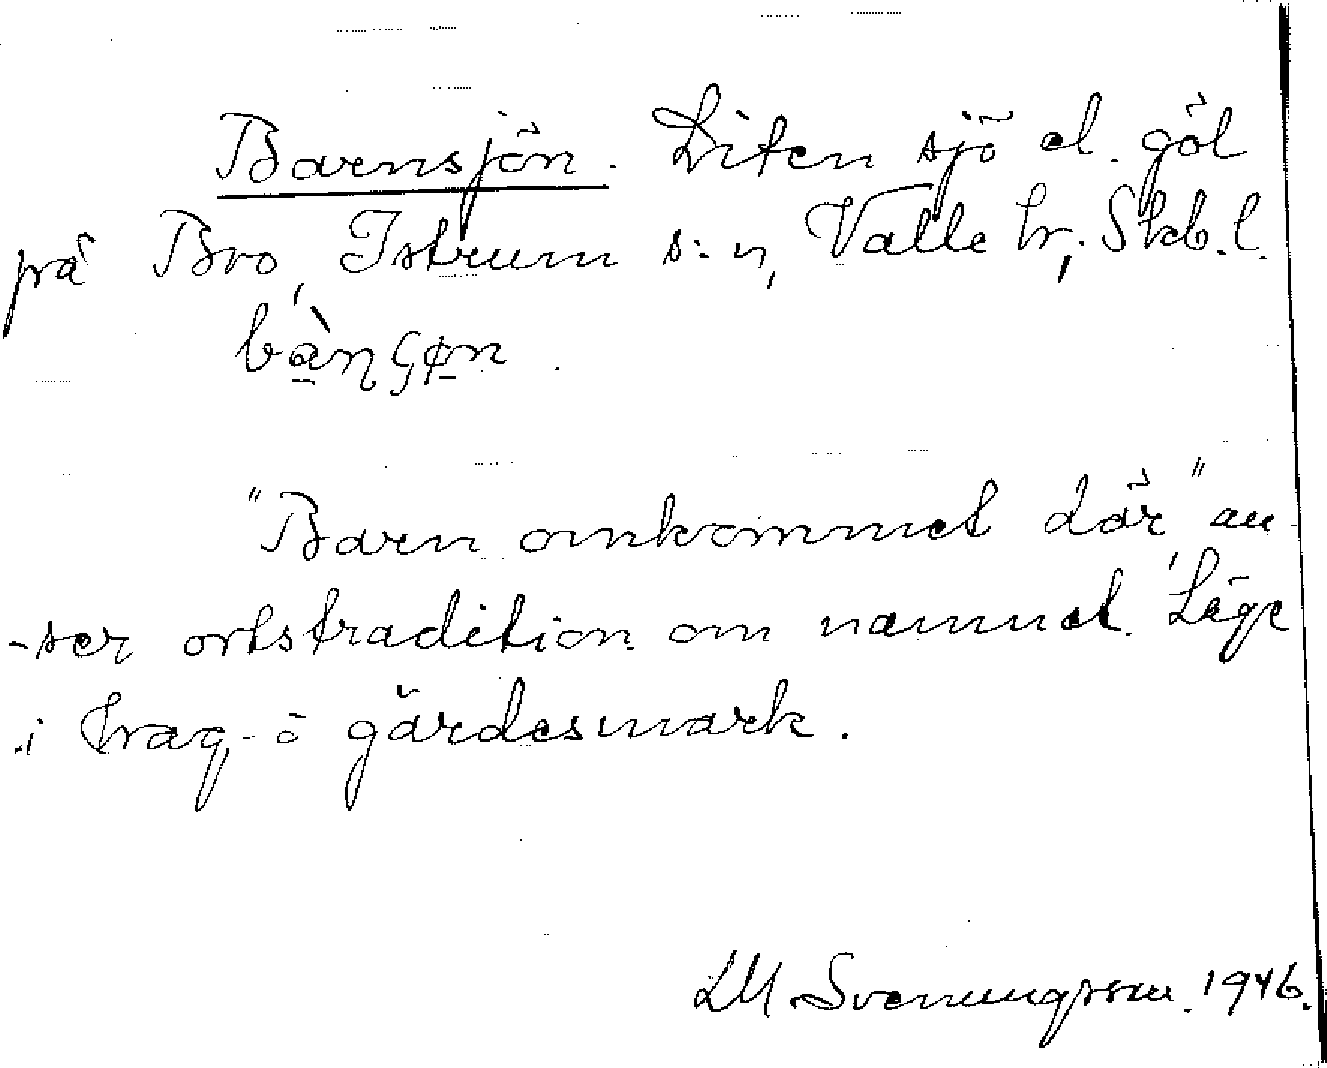 Barnsjön. Liten sjö el. göl
på Bro, Istrum s:n, Valle hr, Skb. l.
"Barn omkommet där" an-
-ser ortstradition om namnet. Läge
i hag- o gärdesmark.
LM Svenungsson. 1946.